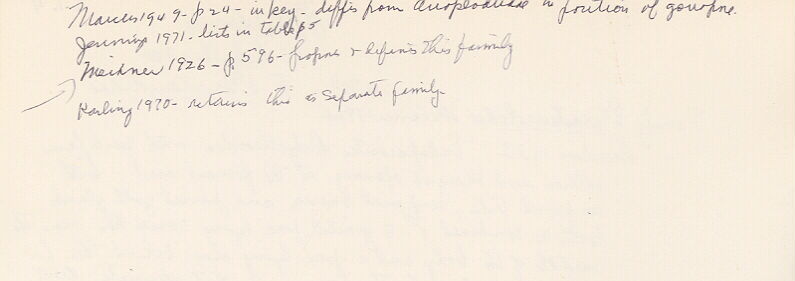 Marcus 1949 - p. 24 - in key - differs from Anoplodiidae in position of gonopore.
Jennings 1971 - lists in table p 5
Meixner 1926 - p. 596 - proposes & defines this family
Karling 1970 - retains this as separate family.